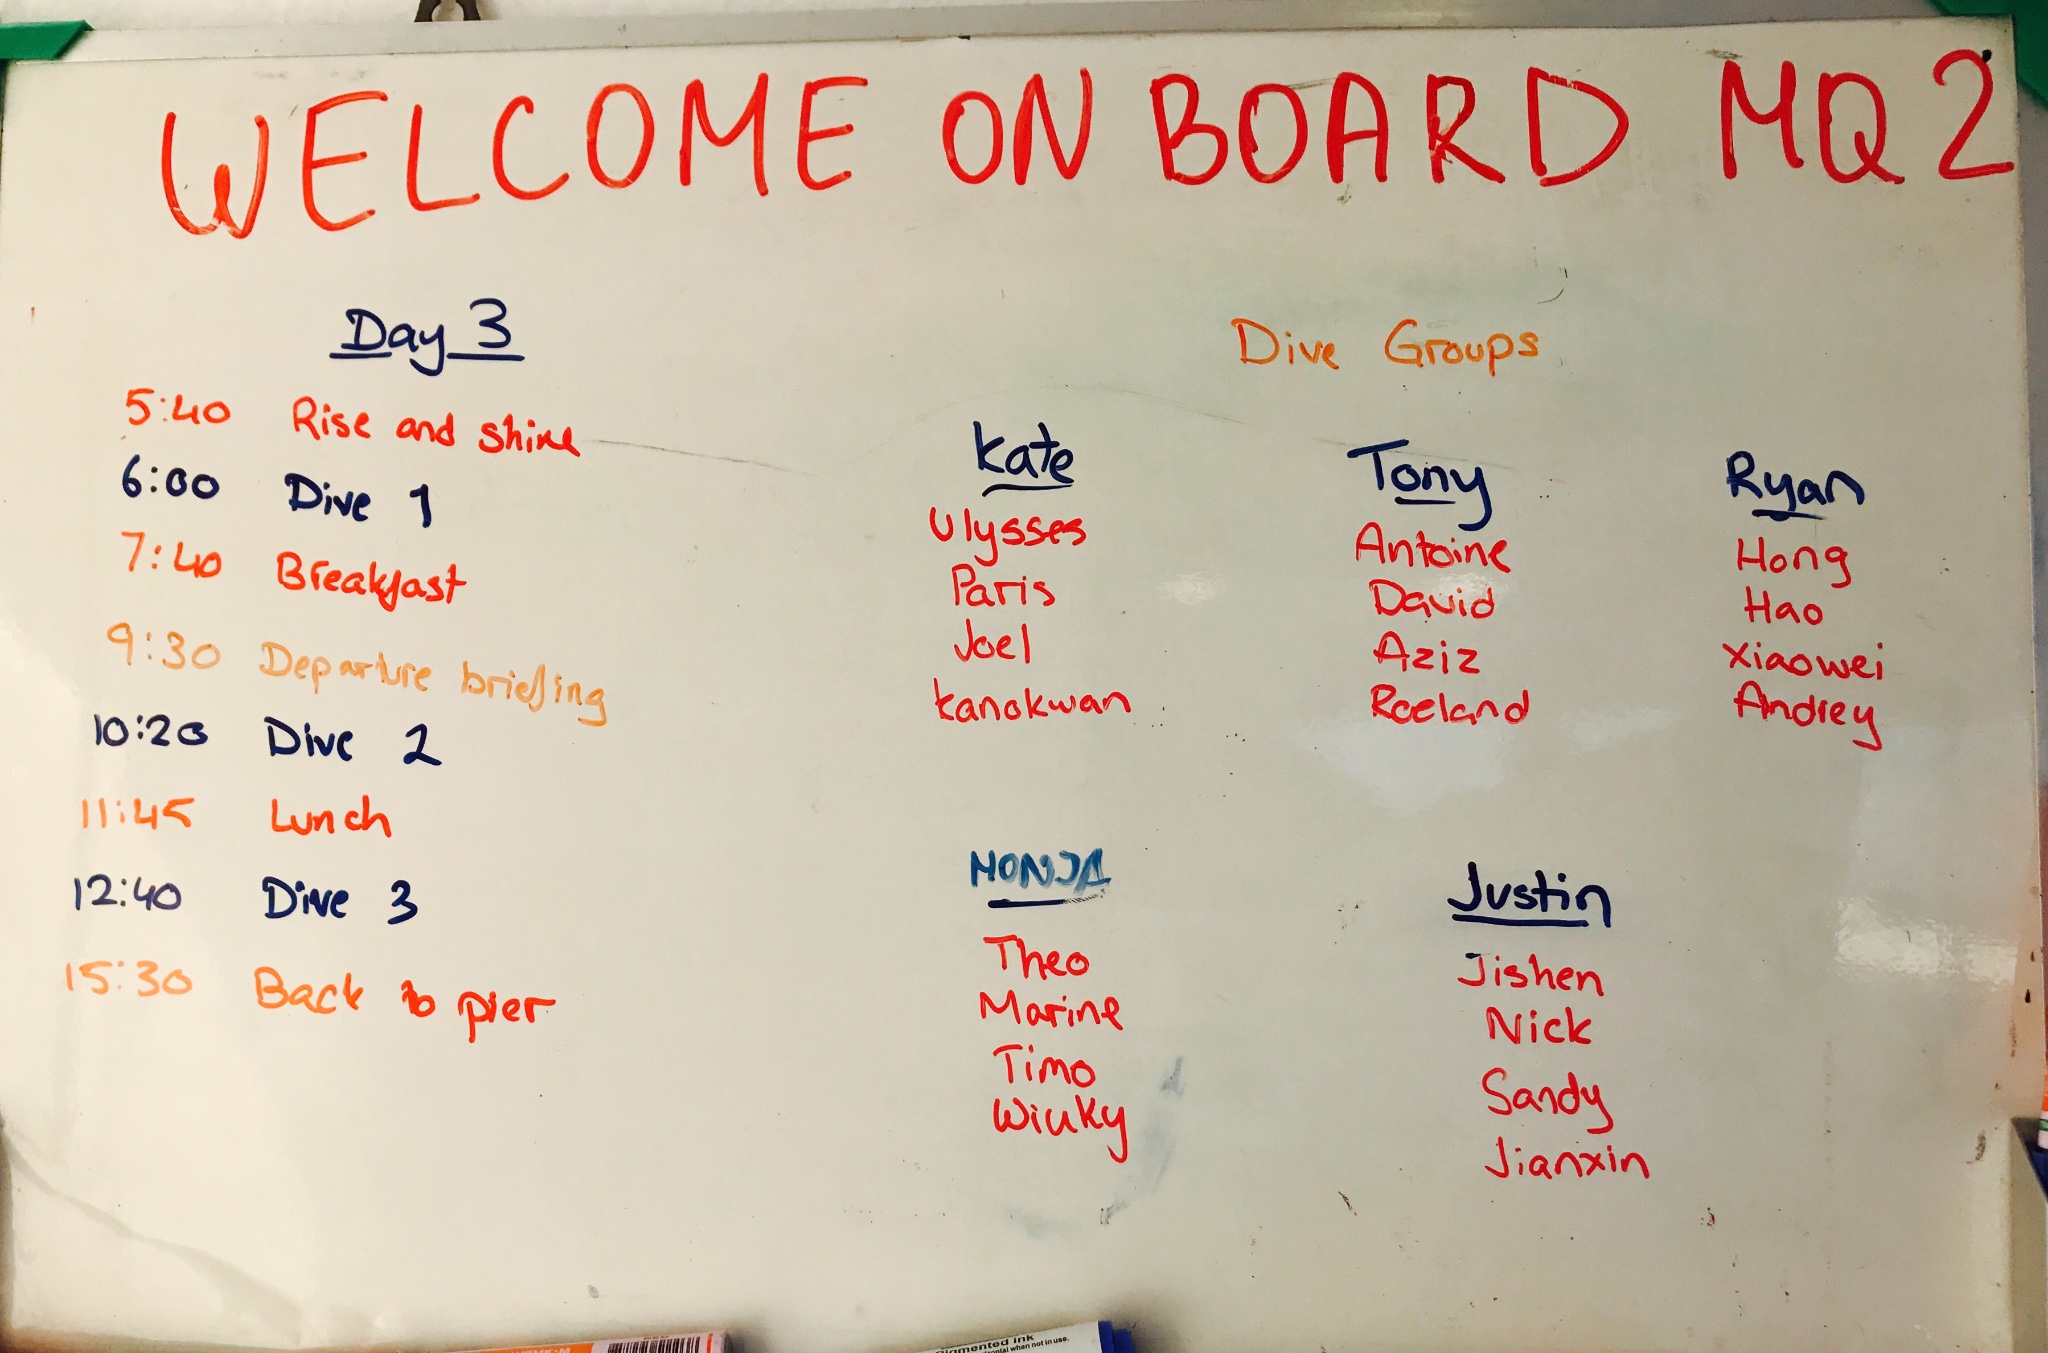 WELCOME ON BOARD MQ2
Day 3
5:40 Rise and shine
6:00 Dive 1
7:40 Breakfast
9:30 Departure briefing
10:20 Dive 2
11:45 Lunch
12:40 Dive 3
15:30 Back to pier
Dive Groups
Kate
Ulysses
Paris
Joel
Kanokwan
Tony
Antoine
David
Aziz
Roeland
Ryan
Hong
Hao
Xiaowei
Andrey
MONJA
Theo
Marine
Timo
Justin
Jishen
Nick
Sandy
Jianxin
ink
when not in use.